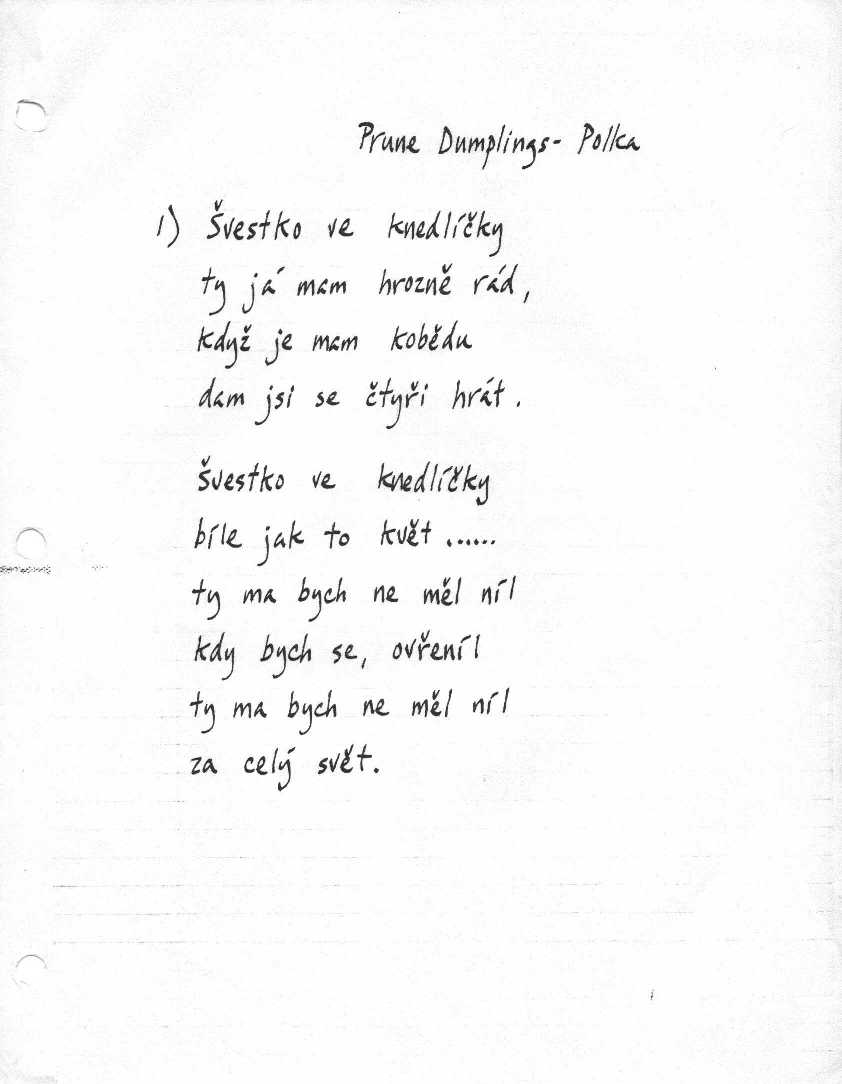 Prune Dumplings- Polka
1) Švestko ve knedlíčky
ty já mam hrozně rád,
když je mam kobědu
dam jsi se čtyři hrát.
Švestko ve knedlíčky
bíle jak to květ ......
ty ma bych ne měl níl
kdy bych se, ovřeníl
ty ma bych ne měl níl
za celý svět.